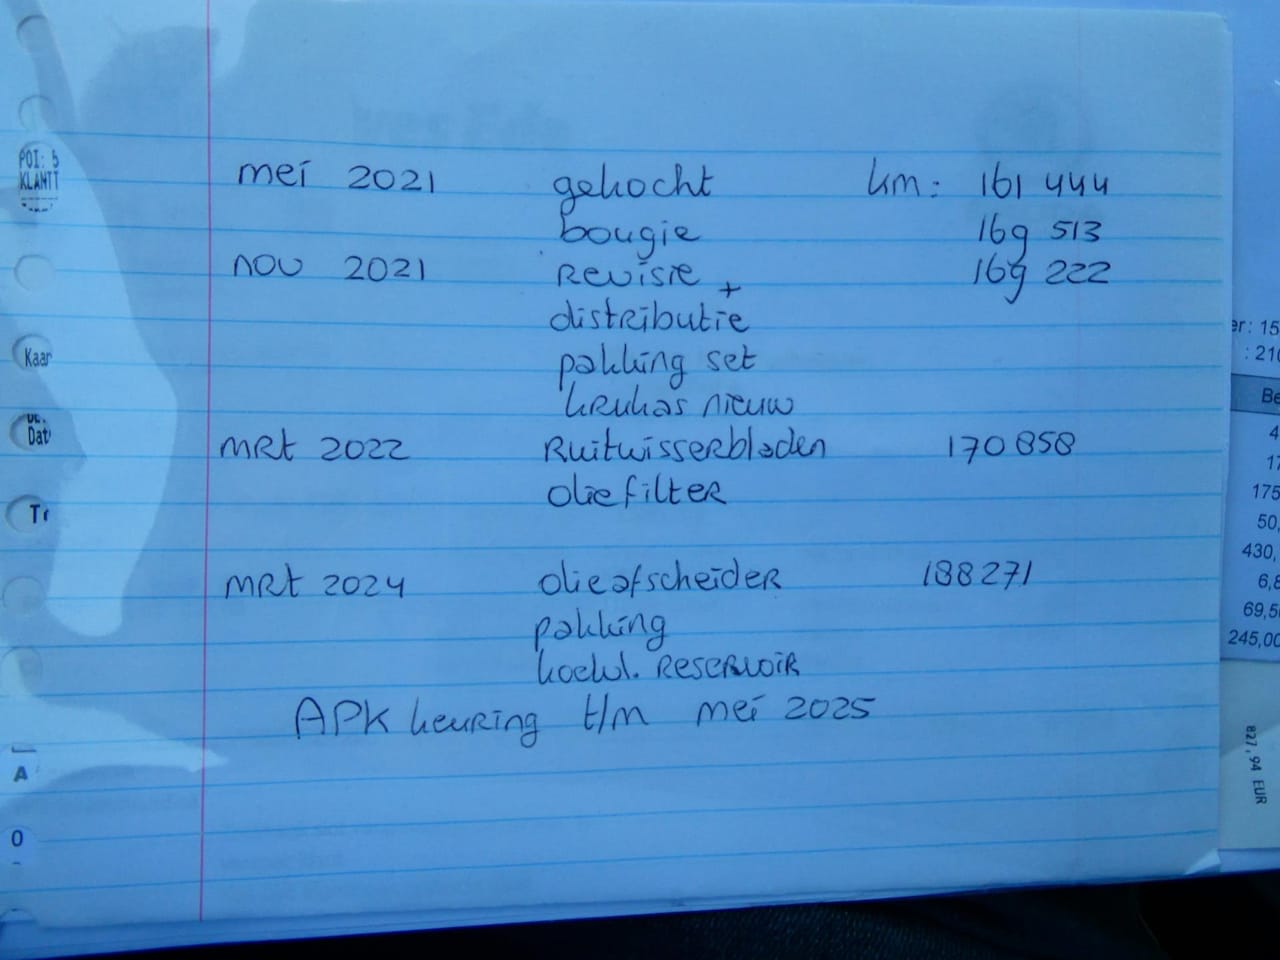 mei 2021 gekocht km: 161 444
bougie 169 513
nov 2021 Revisie + 169 222
distributie
pakking set
krukas nieuw
MRt 2022 Ruitwisserbladen 170 858
olie filter
MRt 2024 olieafscheider 188271
pakking
koelvl. Reservoir
APK keuring t/m mei 2025
POI: 5
KLANTT
Kaar
Dat
Tr
A
0
er: 15
: 210
Be
4
17
175
50,
430,
6,8
69,5
245,00
827,94 EUR